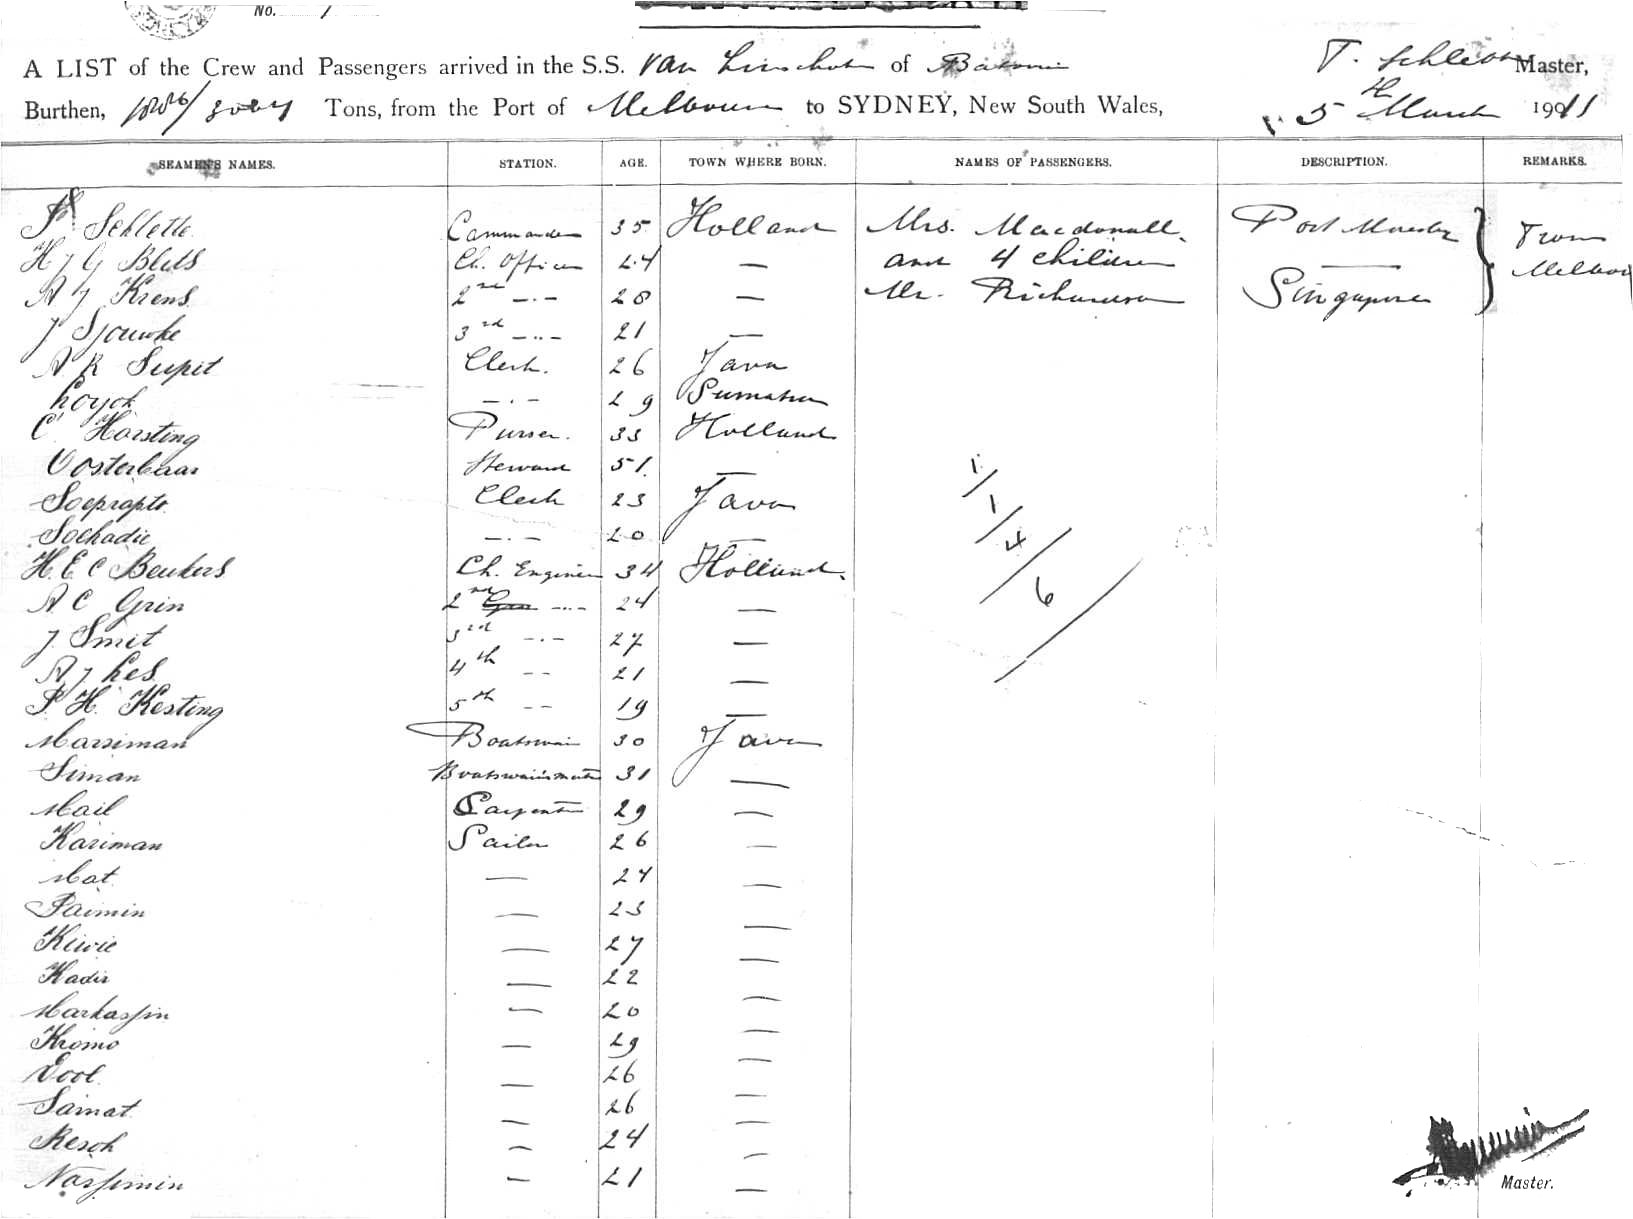 No. 1
A LIST of the Crew and Passengers arrived in the S.S. Van Linschoten of Batavia T. Schlette Master,
Burthen, Tons, from the Port of Melbourne to SYDNEY, New South Wales, 5th March 1911
SEAMEN'S NAMES. STATION. AGE. TOWN WHERE BORN. NAMES OF PASSENGERS. DESCRIPTION. REMARKS.
Schlette Commander 35 Holland Mrs. Macdonall Port Moresby From
H J G Blets Ch. Officer 24 — and 4 children — Melbou
A J Krens 2nd -..- 28 — Mr. Richardson Singapore
J Sjouwke 3rd -..- 21 —
A R Supit Clerk. 26 Java
Loyok -.- 29 Sumatra
C Horsting Purser. 33 Holland
Oosterbaan Steward 51. —
Soeprapto Clerk 23 Java
Soehadie -.- 20 —
H. E C Beukers Ch. Engineer 34 Holland.
A C Grin 2nd -..- 24 —
J Smit 3rd -.- 27 —
A J Les 4th -- 21 —
P. H. Kesting 5th -- 19 —
Marsiman Boatswain 30 Java
Siman Boatswain's mate 31 —
Mail Carpenter 29 —
Kariman Sailor 26 —
Mat — 24 —
Paimin — 23 —
Kiwie — 27 —
Kadir — 22 —
Markassin — 20 —
Kromo — 29 —
Dool — 26 —
Saimat — 26 —
Kesoh — 24 —
Nassimin — 21 —
1/1/4/6/
Master.